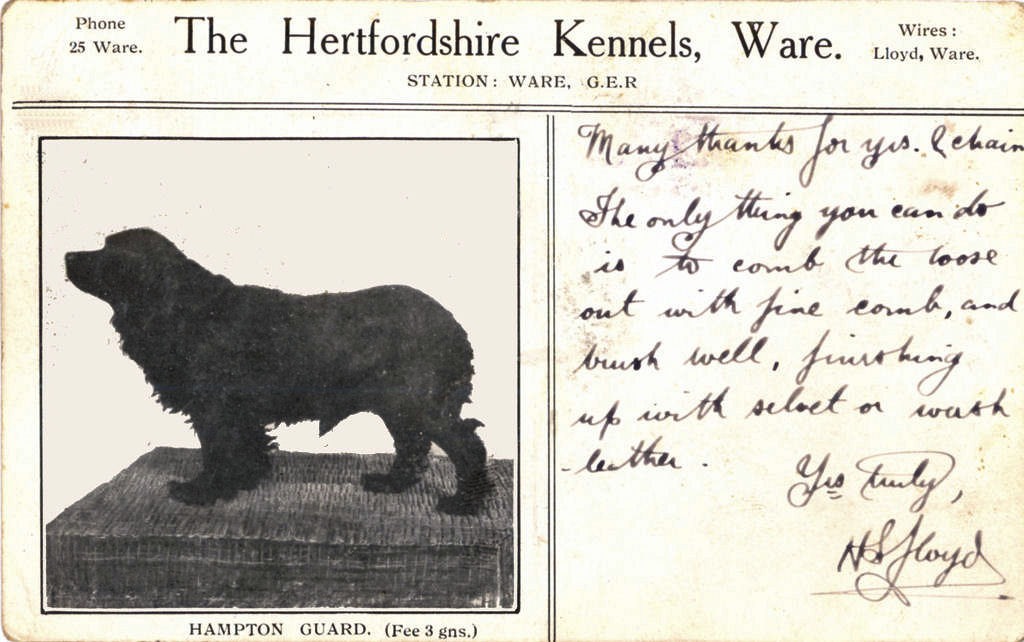 Phone
25 Ware.
The Hertfordshire Kennels, Ware.
Wires:
Lloyd, Ware.
STATION: WARE, G.E.R
HAMPTON GUARD. (Fee 3 gns.)
Many thanks for yrs. & chain
The only thing you can do
is to comb the loose
out with fine comb, and
brush well, finishing
up with velvet or wash
-leather.
Yrs truly,
H S Lloyd